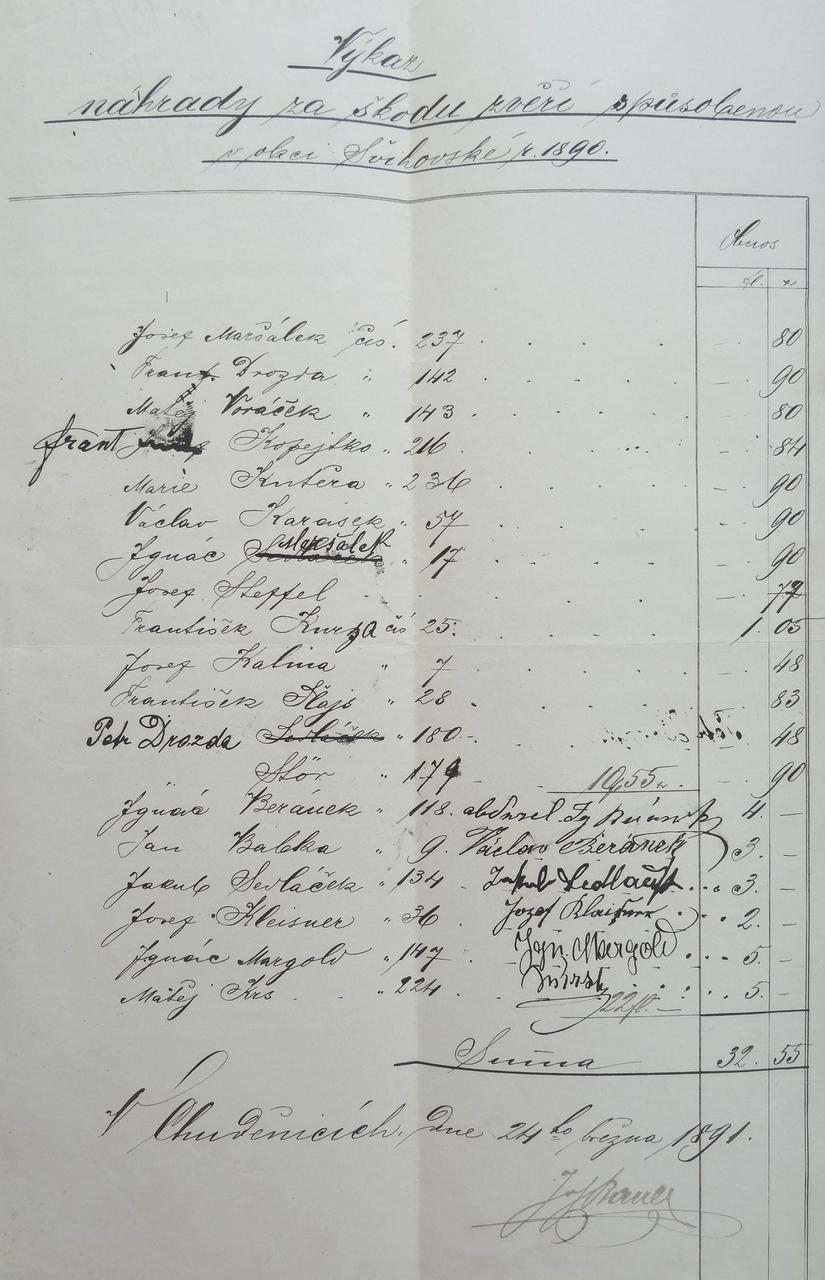 Výkaz
náhrady za škodu zvěří způsobenou
v obci Švihovské r. 1890.
Obnos
fl. kr
Josef Maršálek čís. 237 — 80
Frant. Drozda " 142 — 90
Matěj Voráček " 143 — 80
frant Kopejtko " 216 — 84
Marie Kutěra " 236 — 90
Václav Karásek " 57 — 90
Ignác Maršálek " 17 — 90
Josef Steffel — 77
František Kurza čís 25. 1. 05
Josef Kalina " 7 — 48
František Hajs " 28 — 83
Petr Drozda Sedláček " 180 — 48
Stör " 179 10,55 kr. — 90
Ignác Beránek " 118. 4. —
Jan Babka " 9. Václav Beránek 3. —
Jakub Sedláček " 134 Jakub Sedláček 3. —
Josef Kleisner " 36 Jozef 2. —
Ignác Margold " 147 Ign. Margold 5. —
Matěj Krs " 224 5. —
22 fl. —
Suma 32. 55
V Chuděnicích, dne 24ho března 1891.